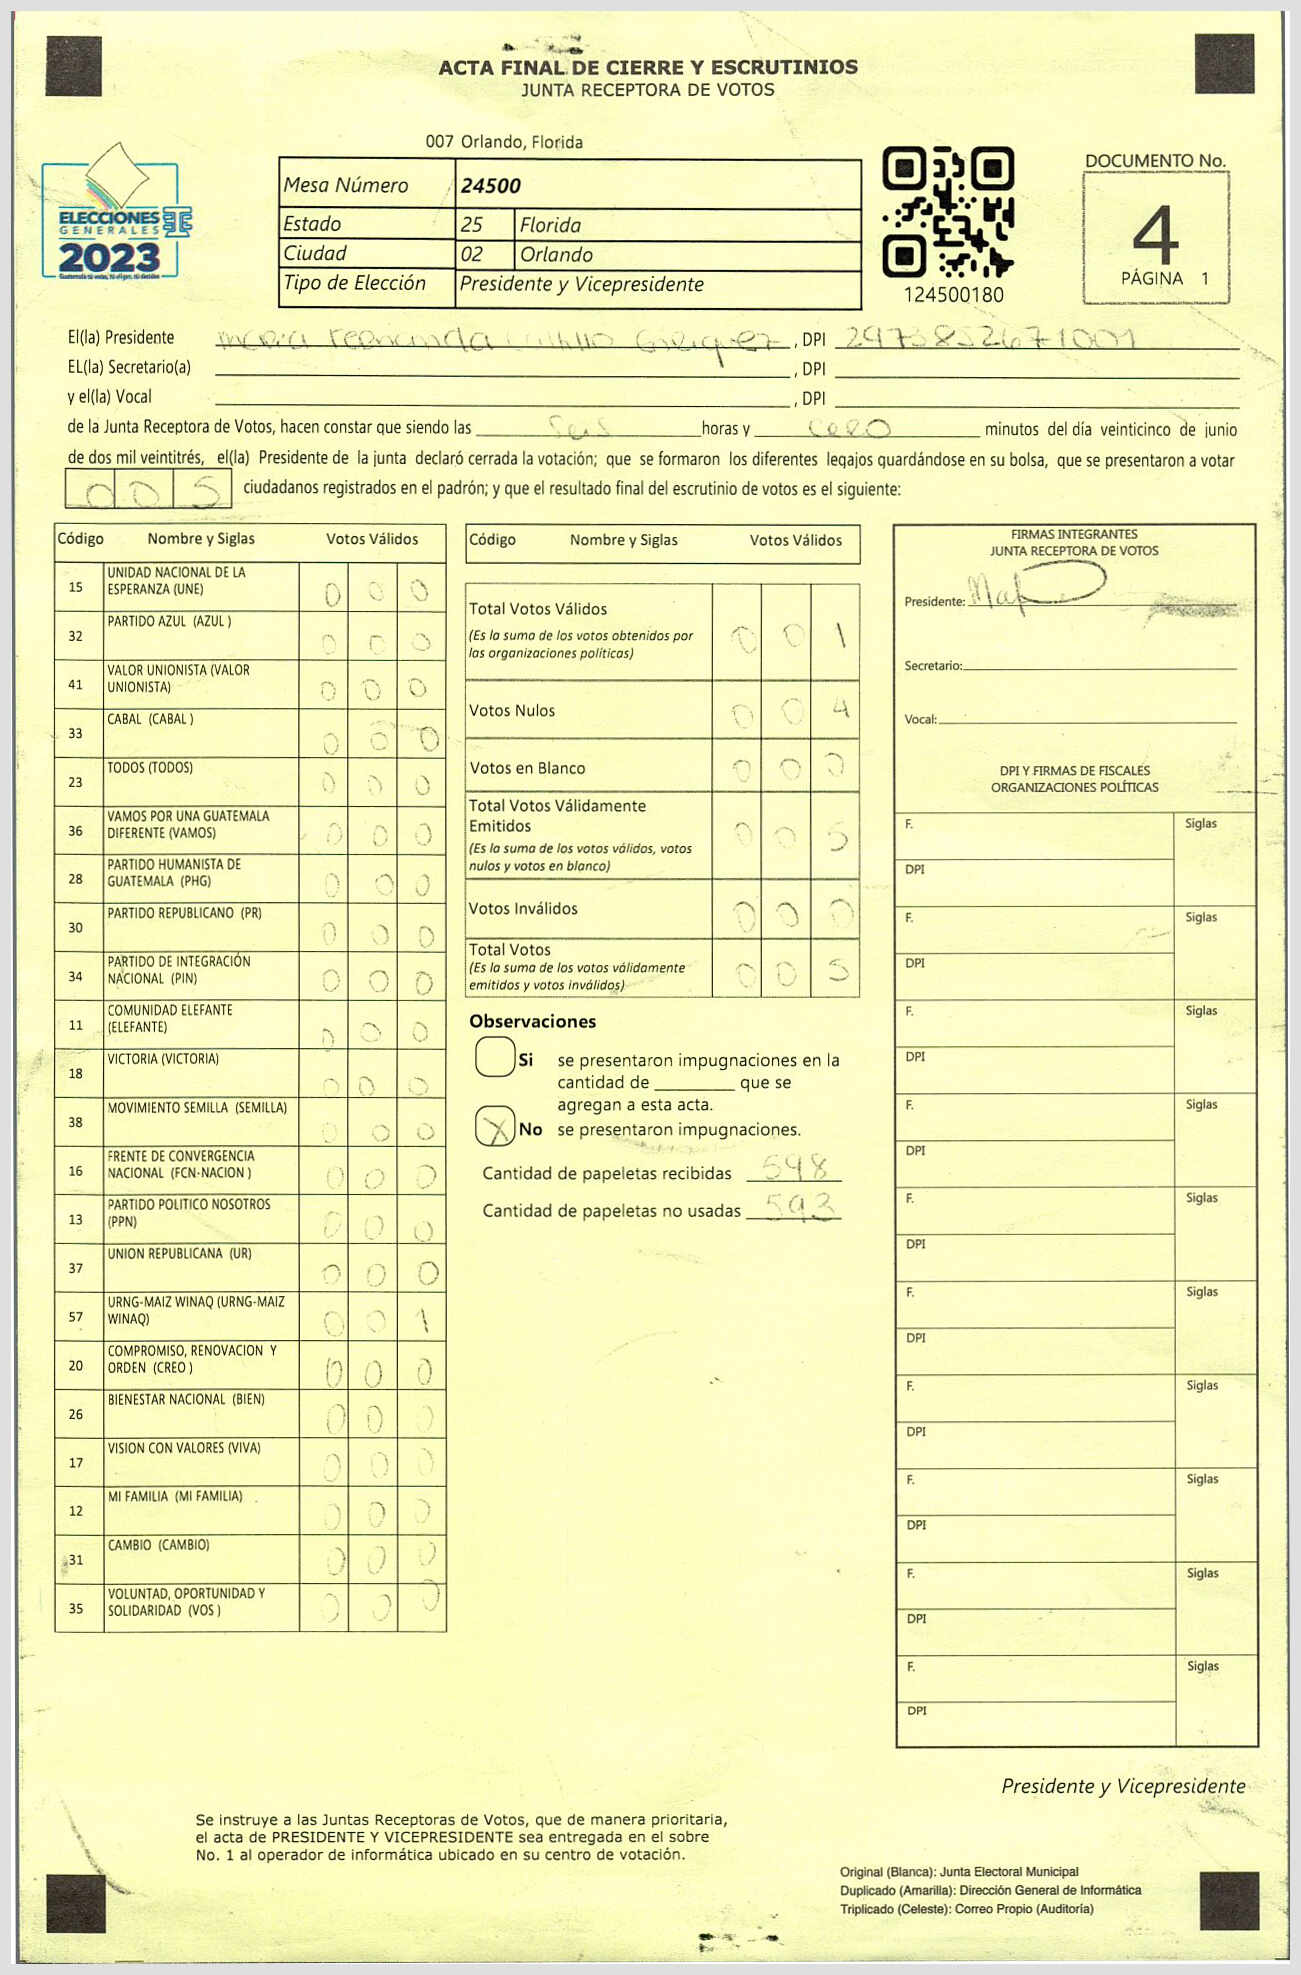 ACTA FINAL DE CIERRE Y ESCRUTINIOS
JUNTA RECEPTORA DE VOTOS
007 Orlando, Florida
ELECCIONES
GENERALES
2023
Mesa Número 24500
Estado 25 Florida
Ciudad 02 Orlando
Tipo de Elección Presidente y Vicepresidente
124500180
DOCUMENTO No.
4
PÁGINA 1
El(la) Presidente Maria Fernanda , DPI
EL(la) Secretario(a) , DPI
y el(la) Vocal , DPI
de la Junta Receptora de Votos, hacen constar que siendo las seis horas y cero minutos del día veinticinco de junio
de dos mil veintitrés, el(la) Presidente de la junta declaró cerrada la votación; que se formaron los diferentes legajos guardándose en su bolsa, que se presentaron a votar
0 0 5 ciudadanos registrados en el padrón; y que el resultado final del escrutinio de votos es el siguiente:
Código Nombre y Siglas Votos Válidos
15 UNIDAD NACIONAL DE LA ESPERANZA (UNE) 0 0 0
32 PARTIDO AZUL (AZUL ) 0 0 0
41 VALOR UNIONISTA (VALOR UNIONISTA) 0 0 0
33 CABAL (CABAL ) 0 0 0
23 TODOS (TODOS) 0 0 0
36 VAMOS POR UNA GUATEMALA DIFERENTE (VAMOS) 0 0 0
28 PARTIDO HUMANISTA DE GUATEMALA (PHG) 0 0 0
30 PARTIDO REPUBLICANO (PR) 0 0 0
34 PARTIDO DE INTEGRACIÓN NACIONAL (PIN) 0 0 0
11 COMUNIDAD ELEFANTE (ELEFANTE) 0 0 0
18 VICTORIA (VICTORIA) 0 0 0
38 MOVIMIENTO SEMILLA (SEMILLA) 0 0 0
16 FRENTE DE CONVERGENCIA NACIONAL (FCN-NACION ) 0 0 0
13 PARTIDO POLITICO NOSOTROS (PPN) 0 0 0
37 UNION REPUBLICANA (UR) 0 0 0
57 URNG-MAIZ WINAQ (URNG-MAIZ WINAQ) 0 0 1
20 COMPROMISO, RENOVACION Y ORDEN (CREO ) 0 0 0
26 BIENESTAR NACIONAL (BIEN) 0 0 0
17 VISION CON VALORES (VIVA) 0 0 0
12 MI FAMILIA (MI FAMILIA) 0 0 0
31 CAMBIO (CAMBIO) 0 0 0
35 VOLUNTAD, OPORTUNIDAD Y SOLIDARIDAD (VOS ) 0 0 0
Código Nombre y Siglas Votos Válidos
Total Votos Válidos 0 0 1
(Es la suma de los votos obtenidos por
las organizaciones políticas)
Votos Nulos 0 0 4
Votos en Blanco 0 0 0
Total Votos Válidamente
Emitidos 0 0 5
(Es la suma de los votos válidos, votos
nulos y votos en blanco)
Votos Inválidos 0 0 0
Total Votos 0 0 5
(Es la suma de los votos válidamente
emitidos y votos inválidos)
Observaciones
Si se presentaron impugnaciones en la
cantidad de ________ que se
agregan a esta acta.
X No se presentaron impugnaciones.
Cantidad de papeletas recibidas 598
Cantidad de papeletas no usadas 593
FIRMAS INTEGRANTES
JUNTA RECEPTORA DE VOTOS
Presidente:
Secretario:
Vocal:
DPI Y FIRMAS DE FISCALES
ORGANIZACIONES POLÍTICAS
F. Siglas
DPI
F. Siglas
DPI
F. Siglas
DPI
F. Siglas
DPI
F. Siglas
DPI
F. Siglas
DPI
F. Siglas
DPI
F. Siglas
DPI
F. Siglas
DPI
F. Siglas
DPI
Presidente y Vicepresidente
Se instruye a las Juntas Receptoras de Votos, que de manera prioritaria,
el acta de PRESIDENTE Y VICEPRESIDENTE sea entregada en el sobre
No. 1 al operador de informática ubicado en su centro de votación.
Original (Blanca): Junta Electoral Municipal
Duplicado (Amarilla): Dirección General de Informática
Triplicado (Celeste): Correo Propio (Auditoría)